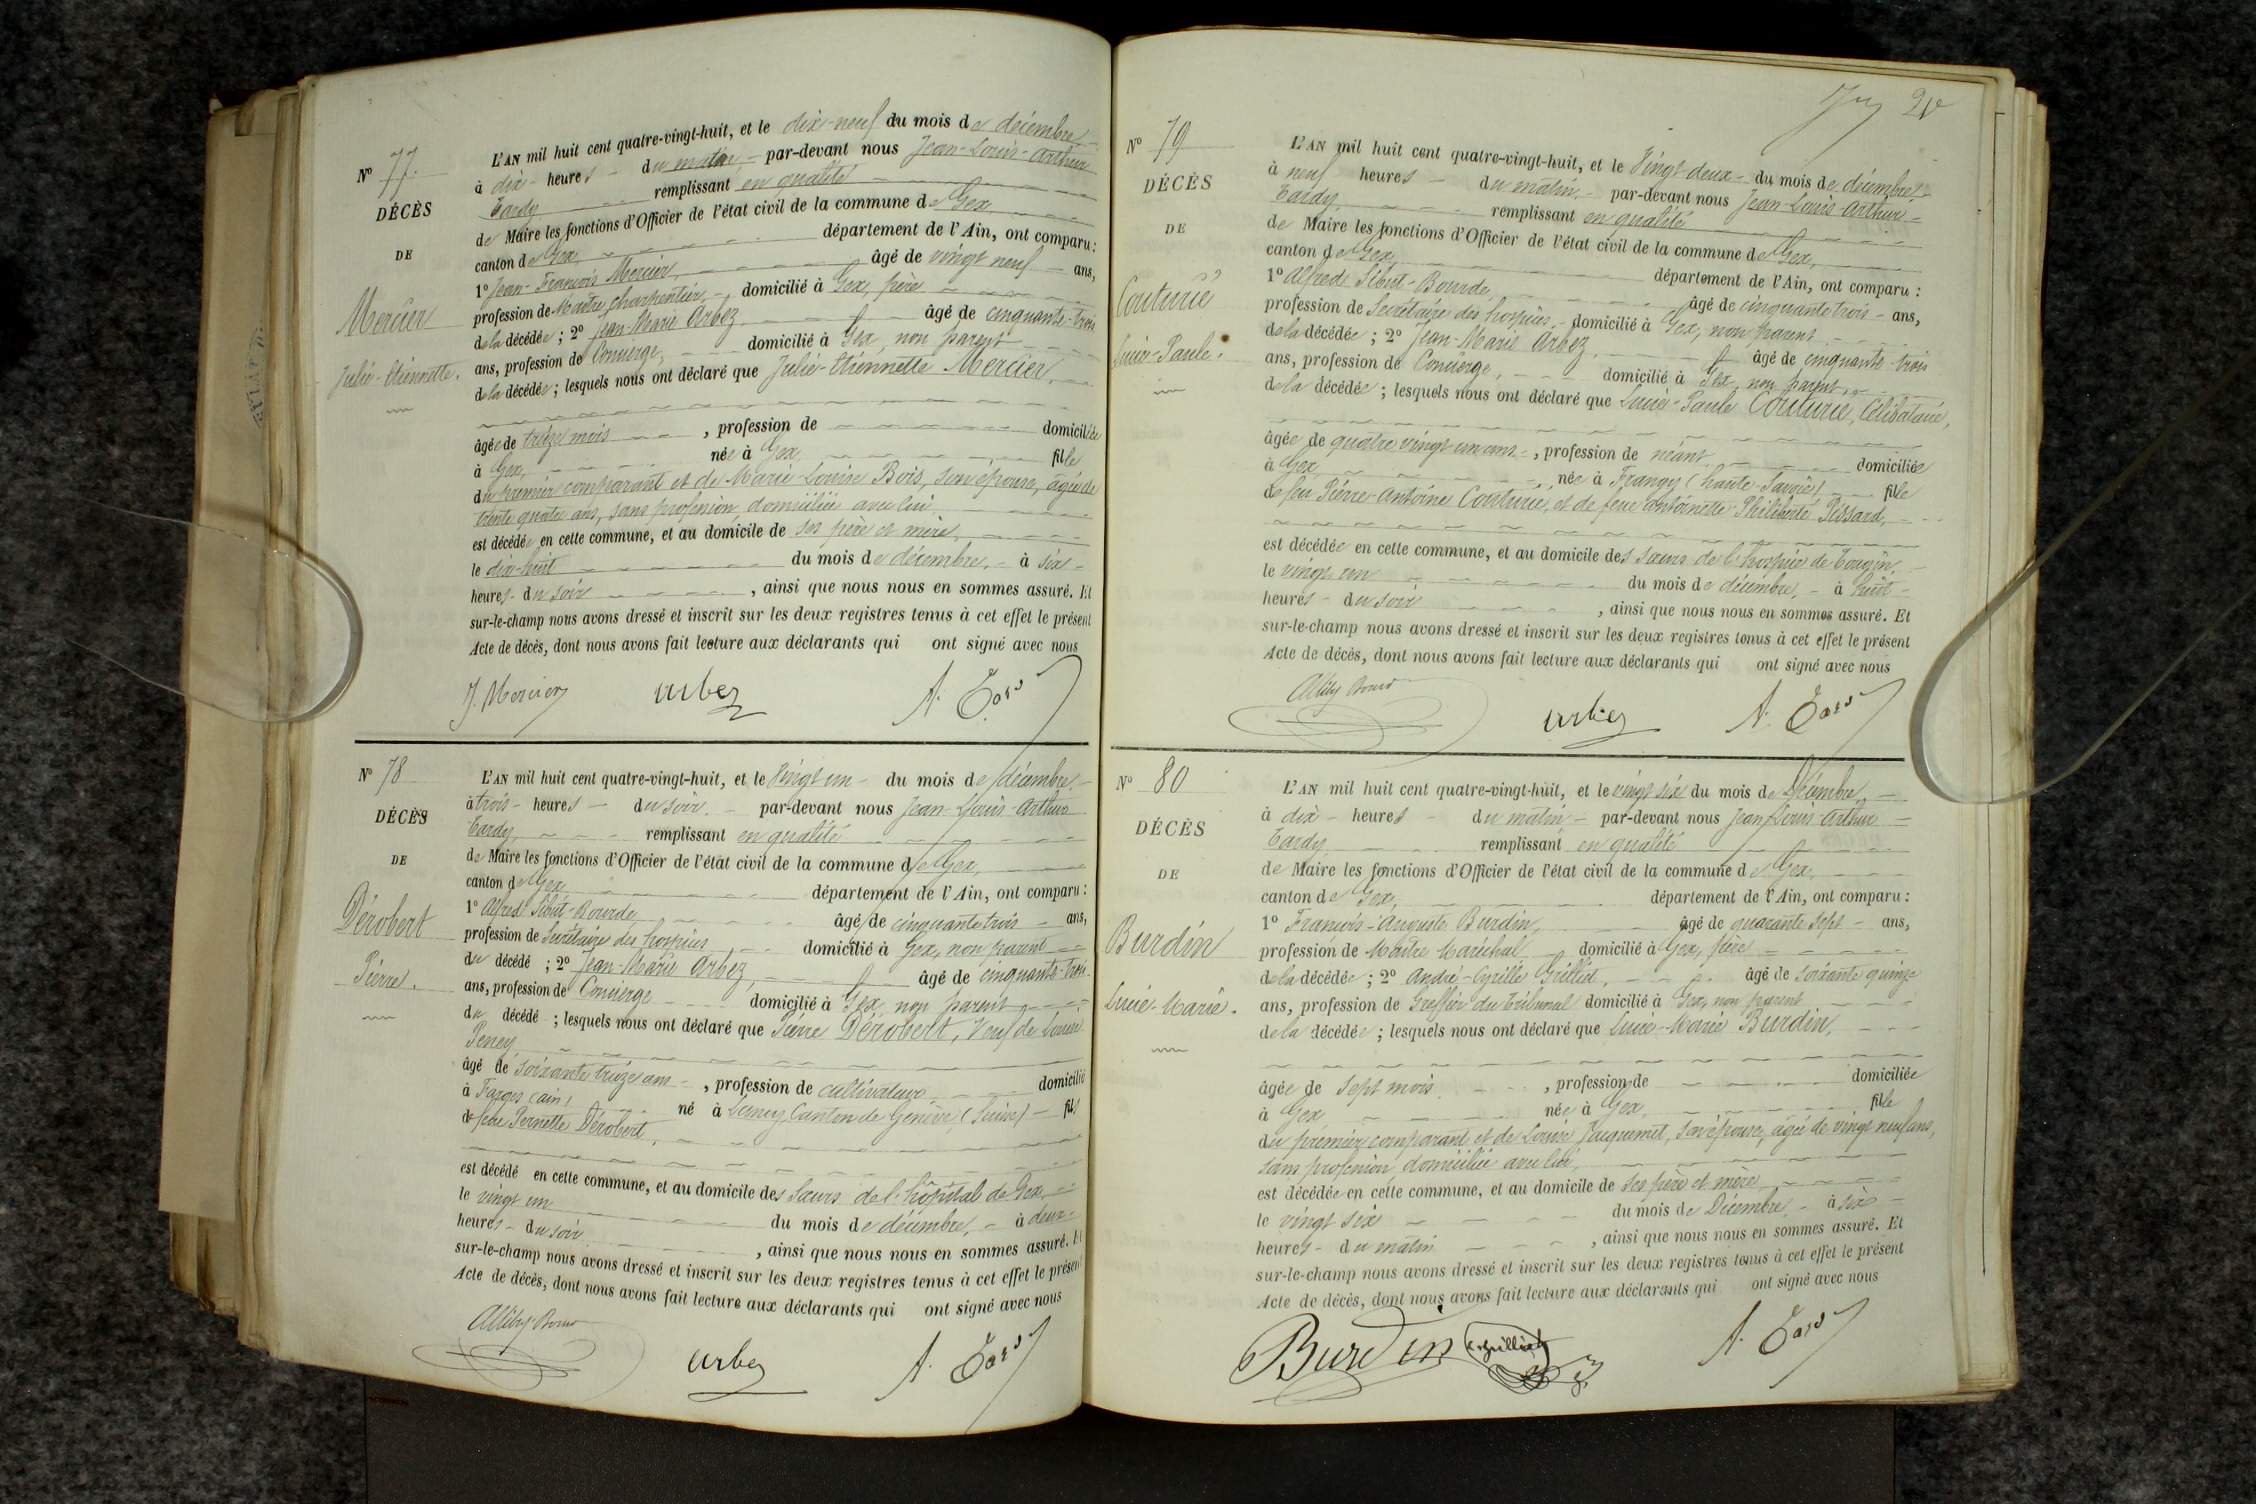 N° 77.
DÉCÈS
DE
Mercier
Julie-Etiennette.
L'AN mil huit cent quatre-vingt-huit, et le dix-neuf du mois de décembre
à dix heures du matin par-devant nous Jean-Louis-Arthur
Tardy remplissant en qualité
de Maire les fonctions d'Officier de l'état civil de la commune de Gex
canton de Gex, département de l'Ain, ont comparu :
1° Jean-François Mercier, âgé de vingt neuf ans,
profession de Maître charpentier, domicilié à Gex, père
de la décédée ; 2° Jean-Marie Arbez âgé de cinquante-trois
ans, profession de Concierge, domicilié à Gex, non parent
de la décédée ; lesquels nous ont déclaré que Julie-Etiennette Mercier,
âgée de treize mois , profession de domiciliée
à Gex, née à Gex fille
du premier comparant et de Marie-Louise Bois, son épouse, âgée de
trente quatre ans, sans profession, domiciliée avec lui,
est décédée en cette commune, et au domicile de ses père et mère,
le dix-huit du mois de décembre, à six
heures du soir , ainsi que nous nous en sommes assuré. Et
sur-le-champ nous avons dressé et inscrit sur les deux registres tenus à cet effet le présent
Acte de décès, dont nous avons fait lecture aux déclarants qui ont signé avec nous
J. Mercier Arbez A. Tardy
N° 78
DÉCÈS
DE
Dérobert
Pierre.
L'AN mil huit cent quatre-vingt-huit, et le Vingt un du mois de décembre
à trois heures du soir par-devant nous Jean-Louis-Arthur
Tardy, remplissant en qualité
de Maire les fonctions d'Officier de l'état civil de la commune de Gex,
canton de Gex département de l'Ain, ont comparu :
1° Alfred Sibut-Bourde âgé de cinquante trois ans,
profession de Secrétaire des hospices domicilié à Gex, non parent
du décédé ; 2° Jean-Marie Arbez, âgé de cinquante-trois
ans, profession de Concierge domicilié à Gex, non parent
du décédé ; lesquels nous ont déclaré que Pierre Dérobert, Veuf de Louise
Peney
âgé de soixante treize ans , profession de cultivateur, domicilié
à Farges (ain) né à Lancy Canton de Genève (Suisse) fils
de feue Pernette Dérobert,
est décédé en cette commune, et au domicile des Sœurs de l'hôpital de Gex,
le vingt un du mois de décembre, à deux
heures du soir , ainsi que nous nous en sommes assuré. Et
sur-le-champ nous avons dressé et inscrit sur les deux registres tenus à cet effet le présent
Acte de décès, dont nous avons fait lecture aux déclarants qui ont signé avec nous
Arbez A. Tardy
N° 79
DÉCÈS
DE
Couturie
Lucie-Paule.
L'AN mil huit cent quatre-vingt-huit, et le Vingt-deux du mois de décembre
à neuf heures du matin par-devant nous Jean-Louis-Arthur
Tardy, remplissant en qualité
de Maire les fonctions d'Officier de l'état civil de la commune de Gex,
canton de Gex, département de l'Ain, ont comparu :
1° Alfrede Sibut-Bourde, âgé de cinquante trois ans,
profession de Secrétaire des hospices, domicilié à Gex, non parent
de la décédée ; 2° Jean-Marie Arbez âgé de cinquante-trois
ans, profession de Concierge, domicilié à Gex, non parent
de la décédée ; lesquels nous ont déclaré que Lucie-Paule Couturie, Célibataire,
âgée de quatre vingt un ans , profession de néant domiciliée
à Gex , née à Frangy (haute-Savoie) fille
de feu Pierre-Antoine Couturie, et de feue Antoinette-Philiberte Pissard,
est décédée en cette commune, et au domicile des sœurs de l'hospice de Tougin,
le vingt un du mois de décembre, à huit
heures du soir , ainsi que nous nous en sommes assuré. Et
sur-le-champ nous avons dressé et inscrit sur les deux registres tenus à cet effet le présent
Acte de décès, dont nous avons fait lecture aux déclarants qui ont signé avec nous
Arbez A. Tardy
N° 80
DÉCÈS
DE
Burdin
Lucie-Marie.
L'AN mil huit cent quatre-vingt-huit, et le vingt six du mois de Décembre
à dix heures du matin par-devant nous Jean Louis-Arthur
Tardy remplissant en qualité
de Maire les fonctions d'Officier de l'état civil de la commune de Gex,
canton de Gex, département de l'Ain, ont comparu :
1° François-Auguste Burdin, âgé de quarante sept ans,
profession de Maître Maréchal domicilié à Gex, père
de la décédée ; 2° André-Cyrille Grilliet, âgé de soixante quinze
ans, profession de Greffier du Tribunal domicilié à Gex, non parent
de la décédée ; lesquels nous ont déclaré que Lucie-Marie Burdin,
âgée de sept mois , profession de domiciliée
à Gex née à Gex, fille
du premier comparant et de Louise Jacquemet, son épouse, âgée de vingt neuf ans,
sans profession, domiciliée avec lui,
est décédée en cette commune, et au domicile de ses père et mère
le vingt six du mois de Décembre à six
heures du matin , ainsi que nous nous en sommes assuré. Et
sur-le-champ nous avons dressé et inscrit sur les deux registres tenus à cet effet le présent
Acte de décès, dont nous avons fait lecture aux déclarants qui ont signé avec nous
Burdin C. Grilliet A. Tardy